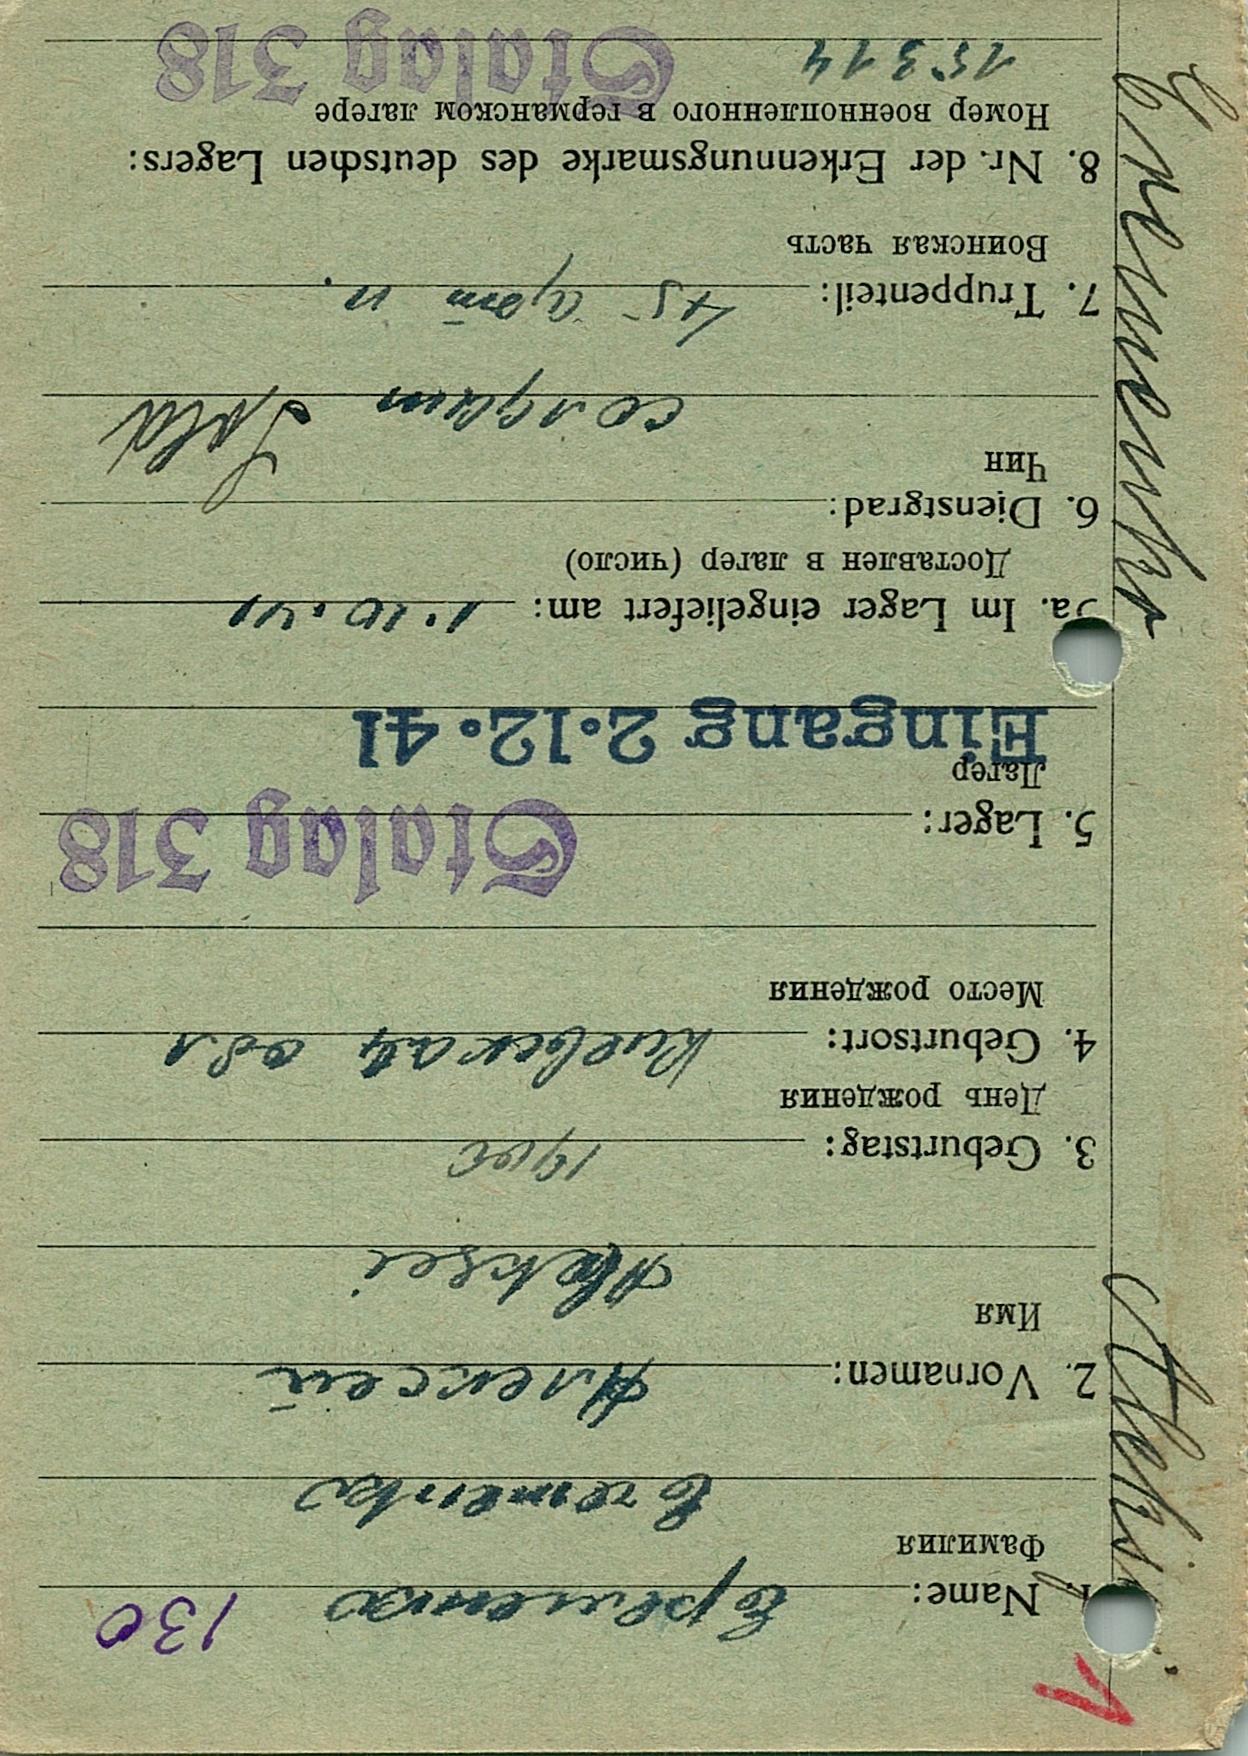 1
130
1. Name: Еременко
Фамилия
Eremenko
2. Vornamen: Алексей
Имя
Aleksei
3. Geburtstag: 1906
День рождения
4. Geburtsort: Киевская обл
Место рождения
Stalag 318
5. Lager:
Лагер
Eingang 2.12.41
5a. Im Lager eingeliefert am: 1.10.41
Доставлен в лагер (число)
6. Dienstgrad:
Чин
солдат Sold
7. Truppenteil: 45
Воинская часть
8. Nr. der Erkennungsmarke des deutschen Lagers:
Номер военнопленного в германском лагере
15314 Stalag 318
Eremenko Aleksij